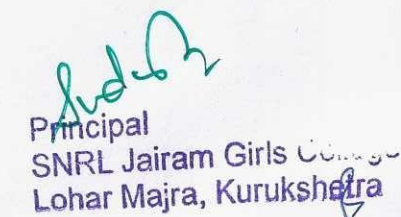 Principal
SNRL Jairam Girls College
Lohar Majra, Kurukshetra